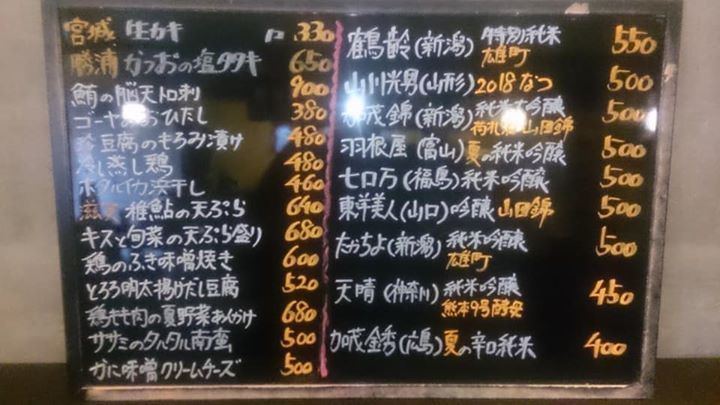 宮城 生カキ 1P 330
勝浦 かつおの塩タタキ 650
鮪の脳天トロ刺 900
ゴーヤのおひたし 380
豆腐のもろみ漬け 480
冷し蒸し鶏 480
ホタルイカ浜干し 460
滋賀 稚鮎の天ぷら 640
キスと旬菜の天ぷら盛り 680
鶏のふき味噌焼き 600
とろろ明太揚げだし豆腐 520
鶏もも肉の夏野菜あんかけ 680
ササミのタルタル南蛮 500
かに味噌クリームチーズ 500
鶴齢(新潟) 特別純米 550
雄町
山川光男(山形) 2018なつ 500
加茂錦(新潟) 純米大吟醸 500
荷札酒 山田錦
羽根屋(富山) 夏の純米吟醸 500
七ロ万(福島) 純米吟醸 500
東洋美人(山口) 吟醸 山田錦 500
たかちよ(新潟) 純米吟醸 500
雄町
天晴(神奈川) 純米吟醸 450
熊本9号酵母
加茂金秀(広島) 夏の辛口純米 400